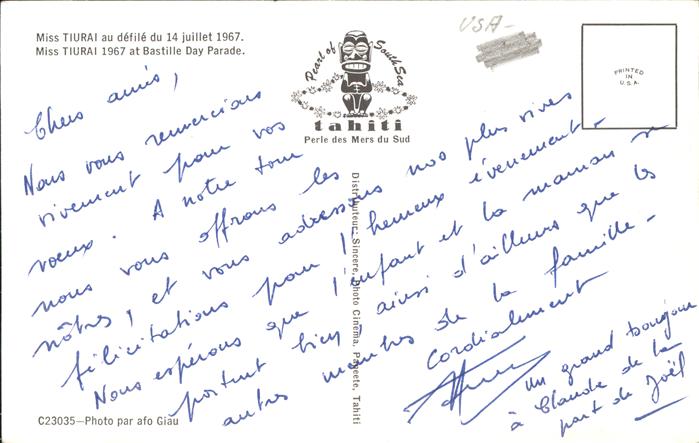 Miss TIURAI au défilé du 14 juillet 1967.
Miss TIURAI 1967 at Bastille Day Parade.
USA-
Pearl of South Sea
tahiti
Perle des Mers du Sud
PRINTED
IN
U.S.A.
Chers amis,
Nous vous remercions
vivement pour vos
voeux. A notre tour
nous vous offrons les
nôtres! et vous adressons nos plus vives
félicitations pour l'heureux évènement-
Nous espérons que l'enfant et la maman se
portent bien ainsi d'ailleurs que les
autres membres de la famille-
Cordialement
un grand bonjour
à Claude de la
part de Joël
Distributeur: Sincere, Photo Cinema, Papeete, Tahiti
C23035—Photo par afo Giau